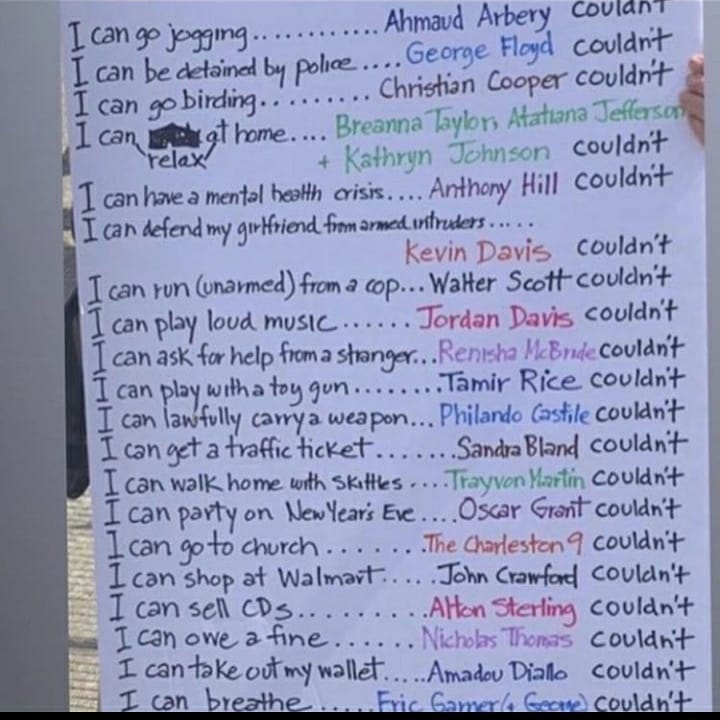 I can go jogging............ Ahmaud Arbery couldn't
I can be detained by police.....George Floyd couldn't
I can go birding......... Christian Cooper couldn't
I can relax at home.... Breanna Taylor, Atatiana Jefferson
+ Kathryn Johnson couldn't
I can have a mental health crisis.... Anthony Hill couldn't
I can defend my girlfriend from armed intruders.....
Kevin Davis couldn't
I can run (unarmed) from a cop... Walter Scott couldn't
I can play loud music...... Jordan Davis couldn't
I can ask for help from a stranger...Renisha McBride couldn't
I can play with a toy gun........Tamir Rice couldn't
I can lawfully carry a weapon...Philando Castile couldn't
I can get a traffic ticket.......Sandra Bland couldn't
I can walk home with Skittles ....Trayvon Martin couldn't
I can party on New Year's Eve ....Oscar Grant couldn't
I can go to church .......The Charleston 9 couldn't
I can shop at Walmart.....John Crawford couldn't
I can sell CDs.........Alton Sterling couldn't
I can owe a fine......Nicholas Thomas couldn't
I can take out my wallet.....Amadou Diallo couldn't
I can breathe.....Eric Garner (+ George) couldn't